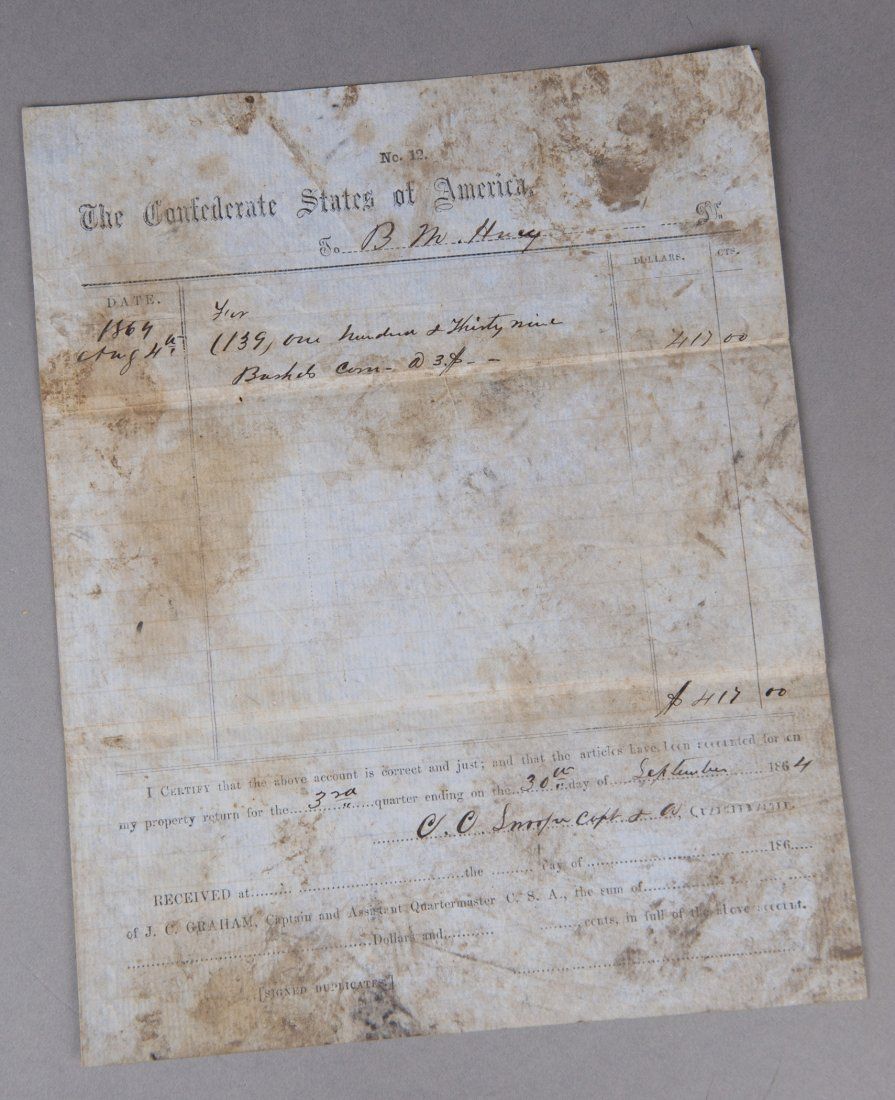 No. 12.
The Confederate States of America,
To B M. Huey Dr.
DATE. DOLLARS. CTS.
1864
Aug 4th
For
(139) one hundred & Thirty nine 417 00
Bushels Corn - @ 3.$ - -
$ 417 00
I CERTIFY that the above account is correct and just; and that the articles have been accounted for on
my property return for the 3rd quarter ending on the 30th day of September 1864
C. C. Capt & A. QUARTERMASTER.
RECEIVED at the day of 186
of J. C. GRAHAM, Captain and Assistant Quartermaster C. S. A., the sum of
Dollars and cents, in full of the above account.
[SIGNED DUPLICATES.]